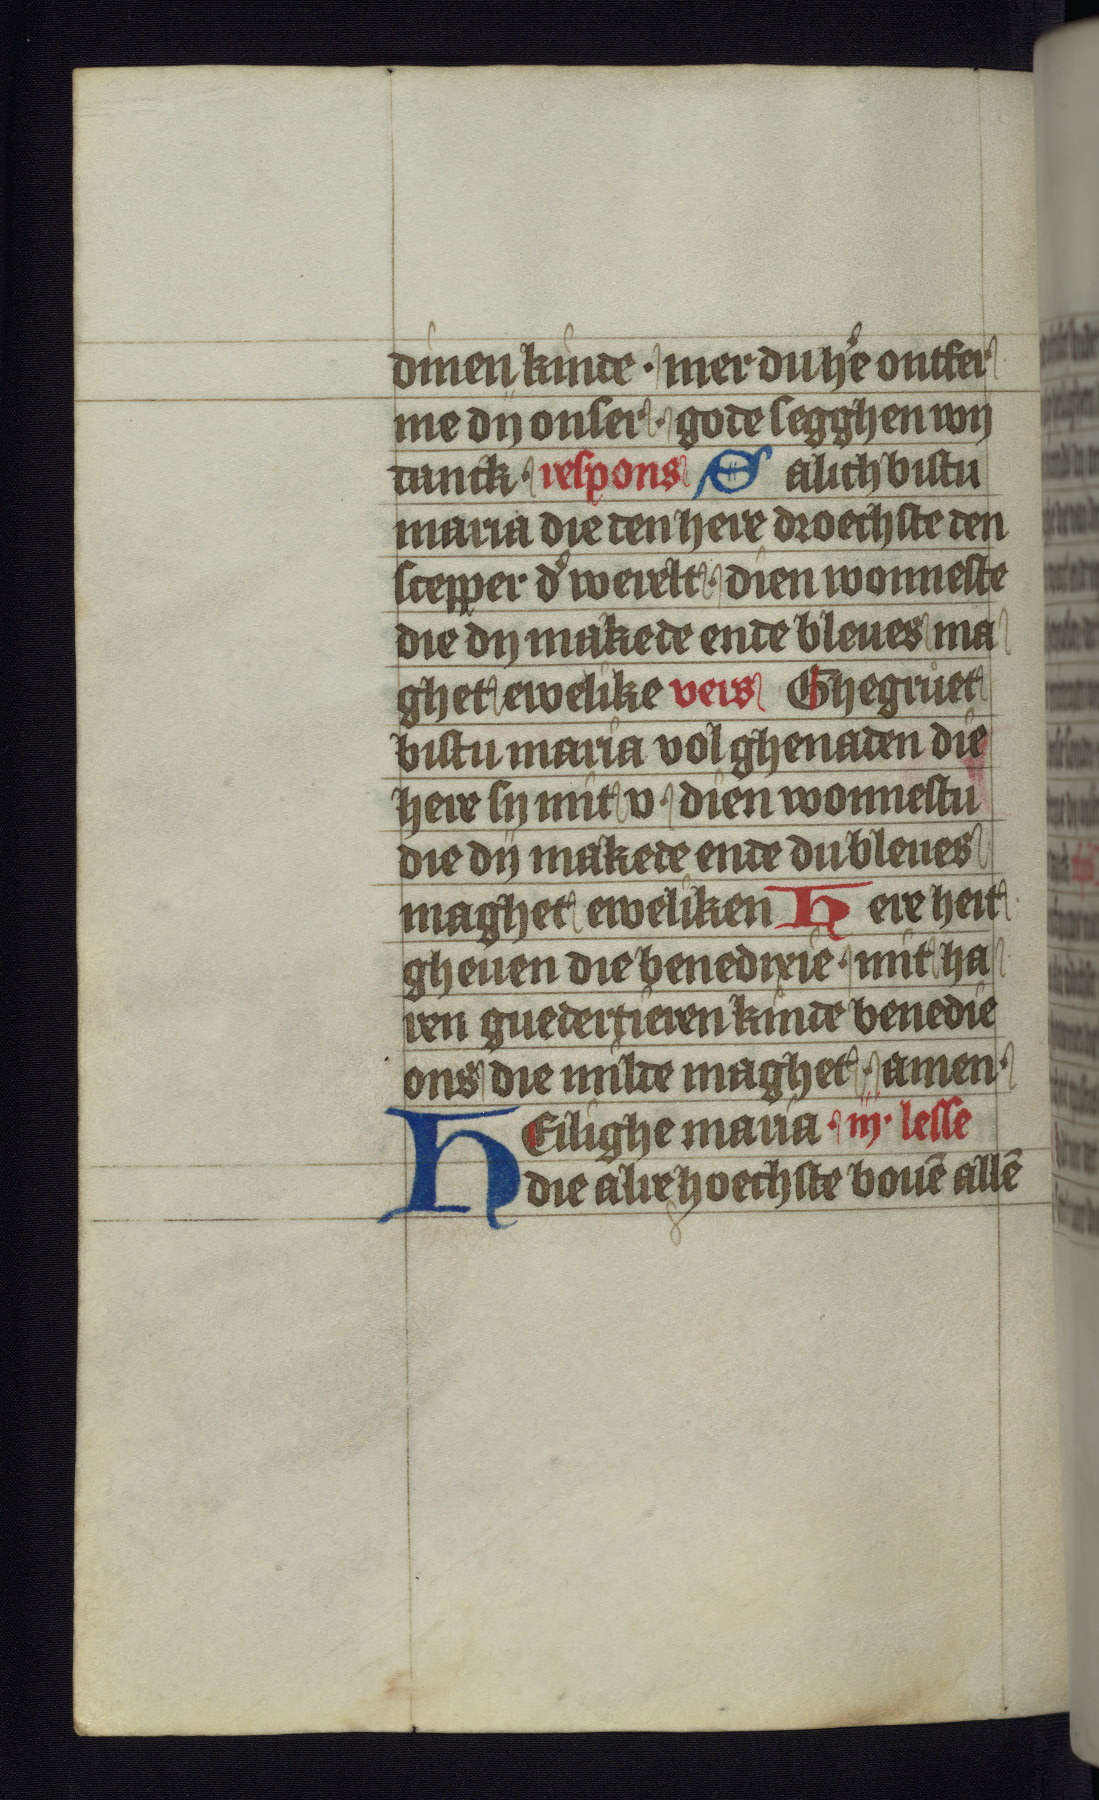 dinen kinde · mer du h̾e ontfer
me dij onser · gode segghen wij
danck · respons S alich bistu
maria die den here droechste den
scepper d̾ werelt · dien wonneste
die dij makede ende bleues ma
ghet ewelike vers Ghegruet
bistu maria vol ghenaden die
here sij mit v · dien wonnestu
die dij makede ende du bleues
maghet eweliken H ere heit
gheuen die benedixie · mit ha
ren guedertieren kinde benedie
ons die milde maghet · amen ·
HEilighe maria · iij · lesse
die alre hoechste bouē allē